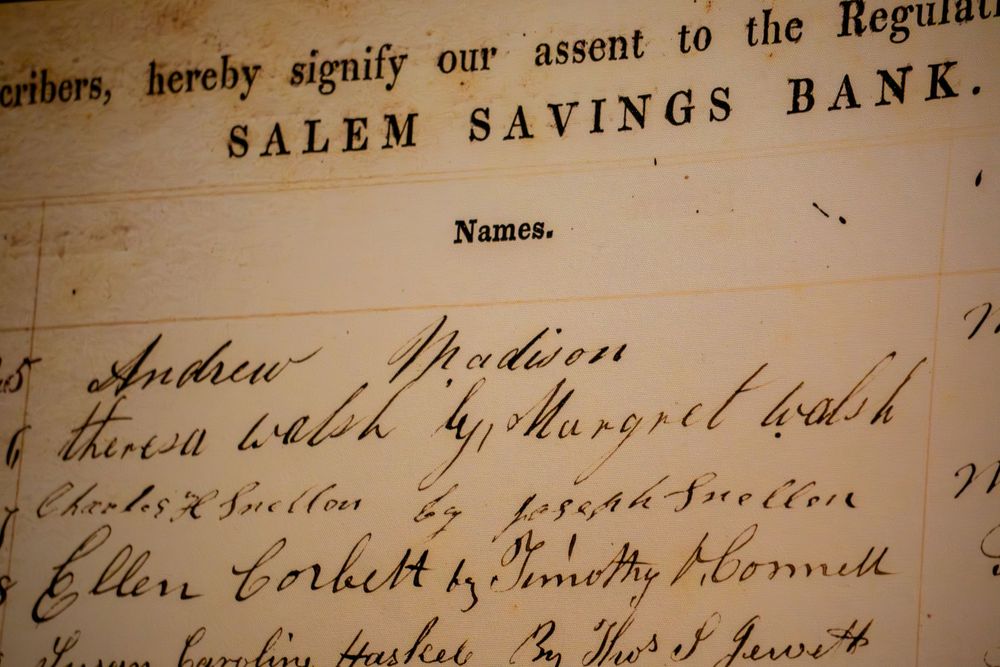 cribers, hereby signify our assent to the Regulati
SALEM SAVINGS BANK.
Names.
5 Andrew Madison
6 theresa walsh by, Margret walsh
Charles H Snellon by joseph Snellon
8 Ellen Corbett by Timothy O'Connell
Susan Caroline Haskel By Thos S Jewett